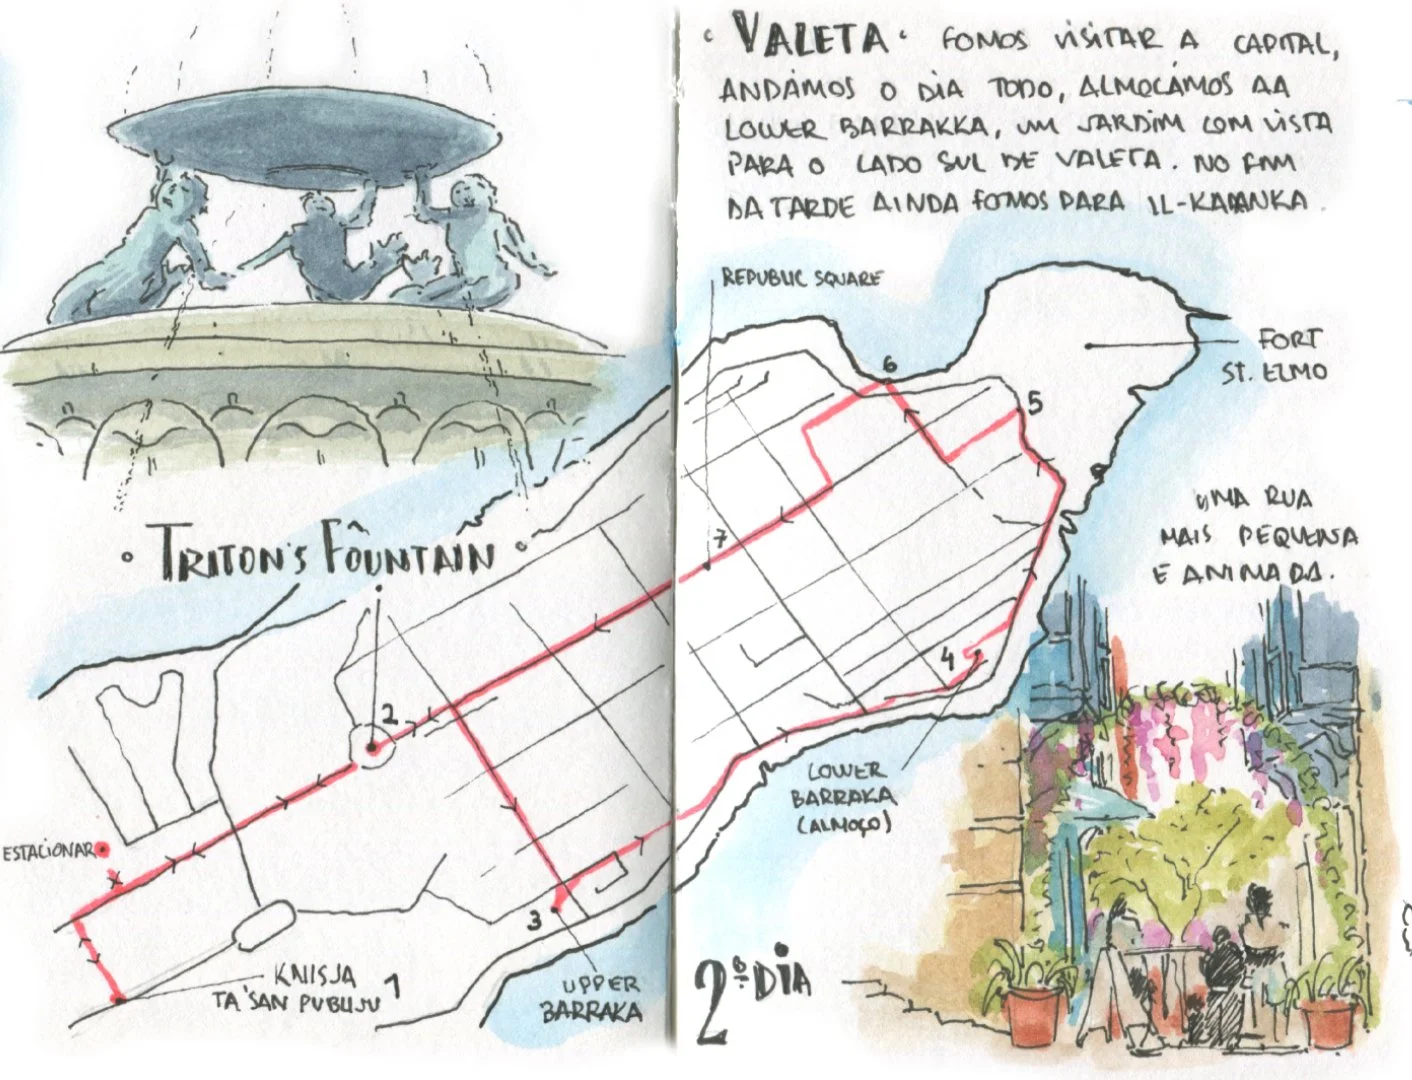 TRITON'S FÔUNTAIN
2
ESTACIONAR
3
KNISJA
TA'SAN PUBLIJU 1
UPPER
BARRAKA
VALETA. FOMOS VISITAR A CAPITAL,
ANDÁMOS O DIA TODO, ALMOÇÁMOS AA
LOWER BARRAKKA, UM JARDIM COM VISTA
PARA O LADO SUL DE VALETA. NO FIM
DA TARDE AINDA FOMOS PARA IL-KALANKA.
REPUBLIC SQUARE
FORT
ST. ELMO
6
5
7
4
UMA RUA
MAIS PEQUENA
E ANIMADA.
LOWER
BARRAKA
(ALMOÇO)
2º DIA